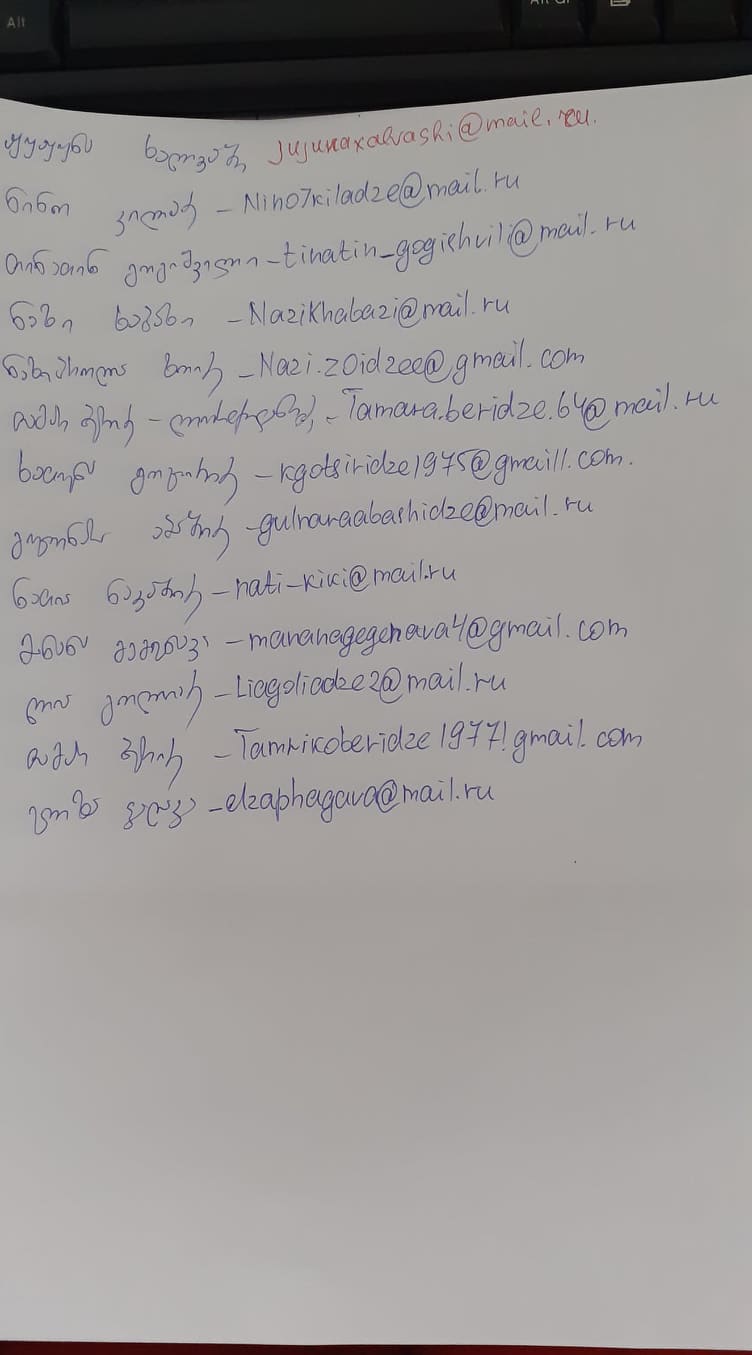 Alt
ჟუჟუნა ხალვაში, jujunaxalvashi@mail.ru.
ნინო კილაძე - Nino7kiladze@mail.ru
თინათინ გოგიშვილი - tinatin_gogishvili@mail.ru
ნაზი ხაბაზი - Nazikhabazi@mail.ru
ზოიძე - Nazi.zoidzee@gmail.com
თამარ ბერიძე - - Tamara.beridze.64@mail.ru
ხათუნა გოცირიძე - kgotsiridze1975@gmaill.com.
გულნარა აბაშიძე - gulnaraabashidze@mail.ru
ნათია - nati-kiki@mail.ru
მანანა გეგენავა - mananagegenava4@gmail.com
ლია გოლიაძე - Liagoliadze2@mail.ru
თამარ ბერიძე - Tamrikoberidze1977!gmail.com
ელზა ფაღავა - elzaphagava@mail.ru